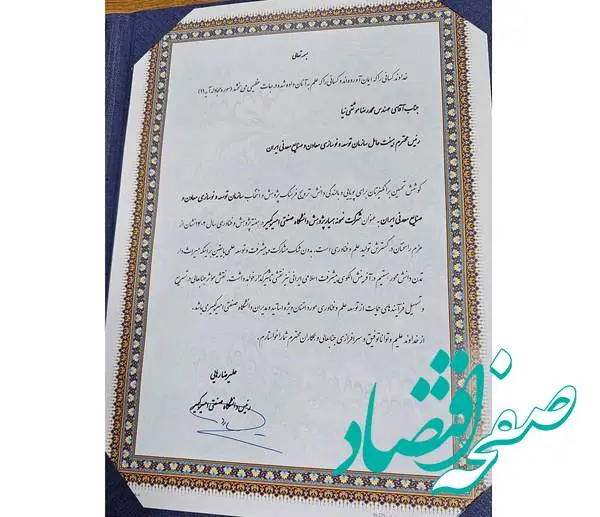 بسمه تعالی
خداوند کسانی را که ایمان آورده اند و کسانی را که علم به آنان داده شده درجات عظیمی می بخشد (سوره مجادله آیه ۱۱)
جناب آقای مهندس محمدرضا موثقی نیا
رئیس محترم هیئت عامل سازمان توسعه و نوسازی معادن و صنایع معدنی ایران
کوشش تحسین برانگیزتان برای پویایی و بالندگی دانش، ترویج فرهنگ پژوهش و انتخاب سازمان توسعه و نوسازی معادن و
صنایع معدنی ایران، به عنوان شرکت نمونه همیار پژوهش دانشگاه صنعتی امیرکبیر در هفته پژوهش و فناوری سال ۱۴۰۲ نشان از
عزم راسختان در گسترش تولید علم و فناوری است. بدون شک مشارکت در پیشرفت و توسعه علمی با یقین بر اینکه میراث دار
تمدن دانش محور هستیم در آفرینش الگوی پیشرفت اسلامی ایرانی نیز نقشی تاثیرگذار خواهد داشت. نقش موثر جنابعالی در تسریع
و تسهیل فرآیندهای حمایت از توسعه علم و فناوری مورد امتنان ویژه اساتید و مدیران دانشگاه صنعتی امیرکبیر می باشد.
از خداوند علیم و توانا توفیق و سرافرازی جنابعالی و همکاران محترم شما را خواستارم.
علیرضا رهایی
رئیس دانشگاه صنعتی امیرکبیر
صفحه اقتصاد